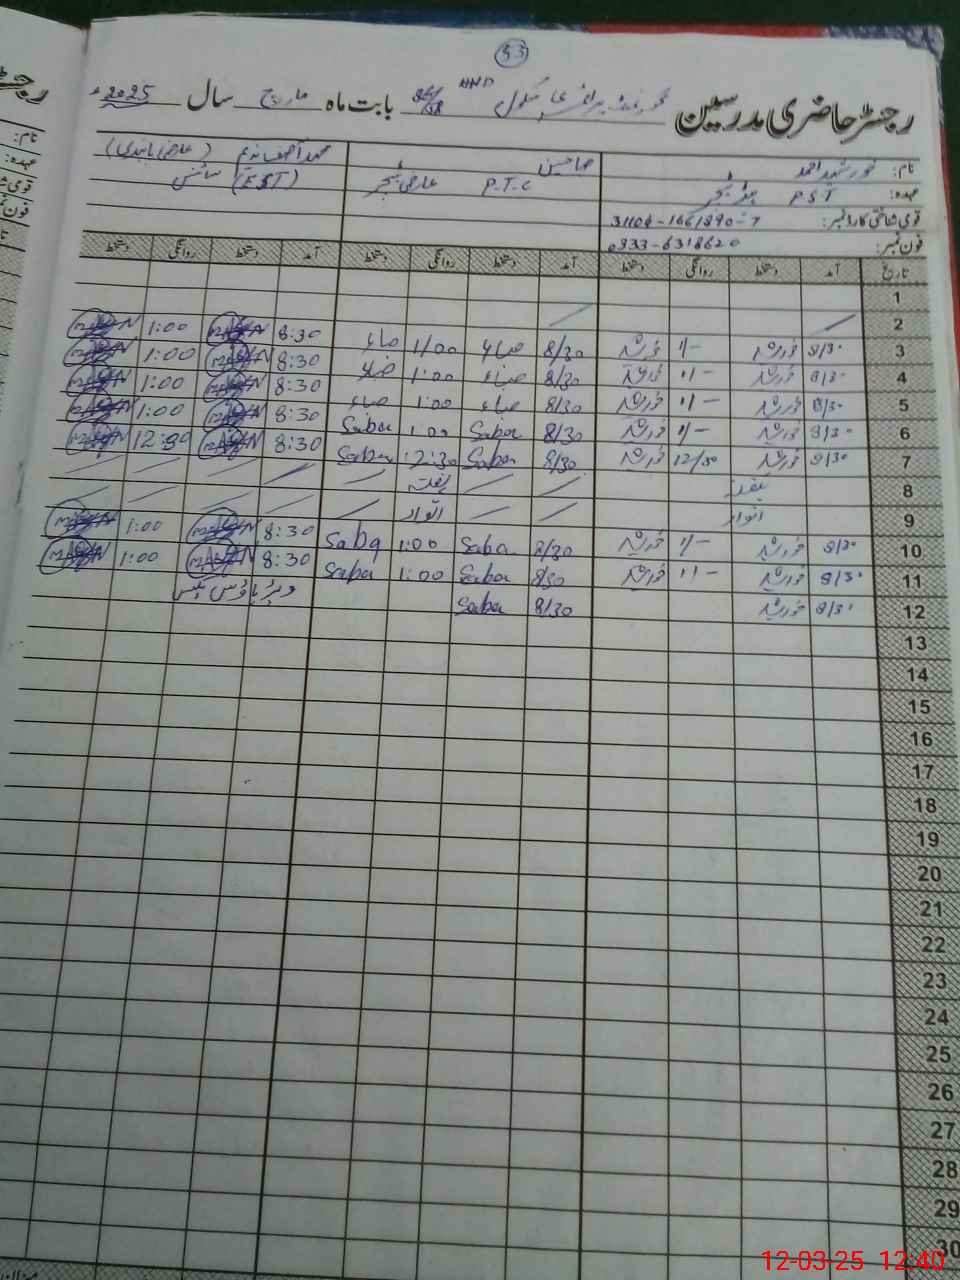 53
رجسٹر حاضری مدرسین گورنمنٹ پرائمری سکول بابت ماہ مارچ سال 2025ء
نام: خورشید احمد صبا حسین محمد آصف ندیم (عارضی پابندی)
عہدہ: P.S.T ہیڈ ٹیچر P.T.C عارضی ٹیچر (EST) سائنس
قومی شناختی کارڈ نمبر: 31104-1661890-7
فون نمبر: 0333-6318620
تاریخ آمد دستخط روانگی دستخط آمد دستخط روانگی دستخط آمد دستخط روانگی دستخط
1
2
3 8/30 خورشید 1/- خورشید 8/30 صباء 1/00 صباء 8:30 1:00
4 8/30 خورشید 1/- خورشید 8/30 صباء 1:00 صباء 8:30 1:00
5 8/30 خورشید 1/- خورشید 8/30 صباء 1:00 صباء 8:30 1:00
6 8/30 خورشید 1/- خورشید 8/30 Saba 1:00 Saba 8:30 1:00
7 8/30 خورشید 12/30 خورشید 8/30 Saba 12:30 Saba 8:30
8 ہفتہ ہفتہ
9 اتوار اتوار
10 8/30 خورشید 1/- خورشید 8/30 Saba 1:00 Saba 8:30 1:00
11 8/30 خورشید 1/- خورشید 8/30 Saba 1:00 Saba 8:30 1:00
12 8/30 خورشید 8/30 Saba
13
14
15
16
17
18
19
20
21
22
23
24
25
26
27
28
29
30
12-03-25 12:40